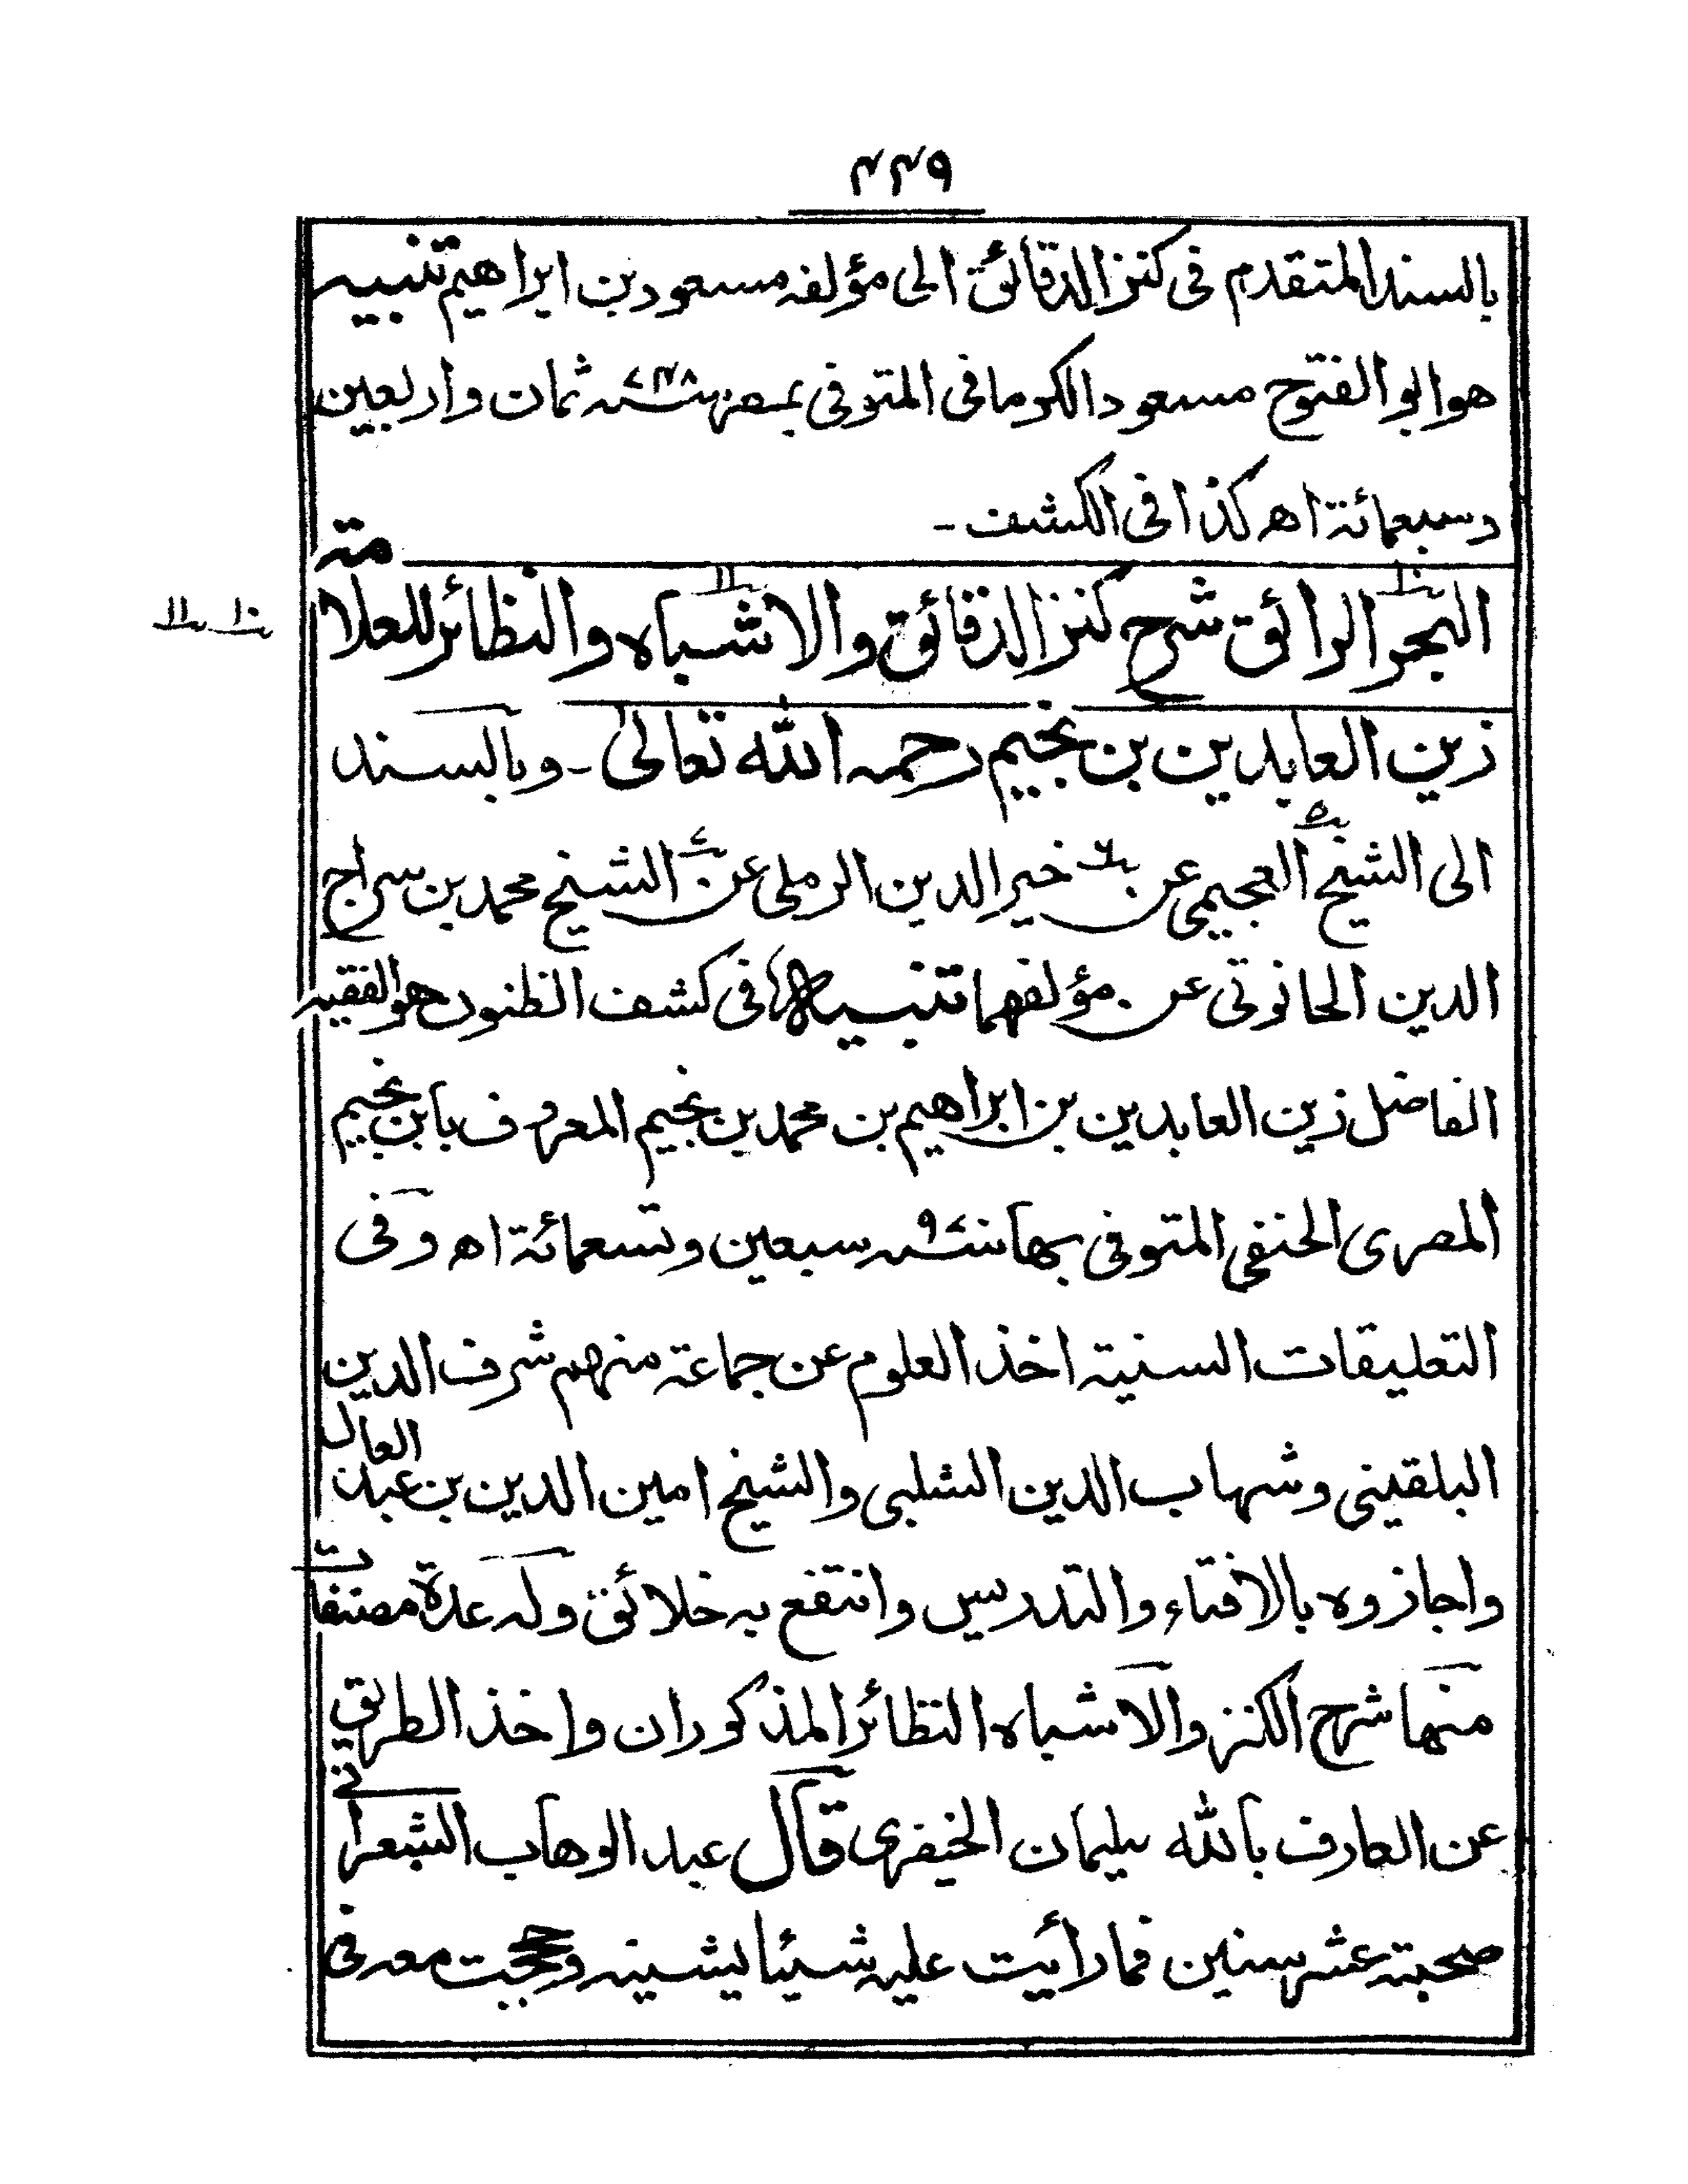 ٤٤٩
بالسند المتقدم فى كنز الدقائق الى مؤلفه مسعود بن ابراهيم تنبيه
هو ابو الفتوح مسعود الكرمانى المتوفى بمصر سنه ٧٤٨ ثمان واربعين
وسبعمائة اهـ كذا فى الكشف -
البحر الرائق شرح كنز الدقائق والاشباه والنظائر للعلامة
زين العابدين بن نجيم رحمه الله تعالى - وبالسند
الى الشيخ العجيمى عن خير الدين الرملى عن الشيخ محمد بن سراج
الدين الحانوتى عن مؤلفهما تنبيه فى كشف الظنون هو الفقيه
الفاضل زين العابدين بن ابراهيم بن محمد بن نجيم المعروف بابن نجيم
المصرى الحنفى المتوفى بها سنه ٩٧٠ سبعين وتسعمائة اهـ وفى
التعليقات السنية اخذ العلوم عن جماعة منهم شرف الدين
البلقينى وشهاب الدين الشلبى والشيخ امين الدين بن عبد العال
واجازوه بالافتاء والتدريس وانتفع به خلائق وله عدة مصنفات
منها شرح الكنز والاشباه النظائر المذكوران واخذ الطريق
عن العارف بالله سليمان الخيضرى قال عبد الوهاب الشعرانى
صحبته عشر سنين فما رأيت عليه شيئا يشينه وحججت معه فى